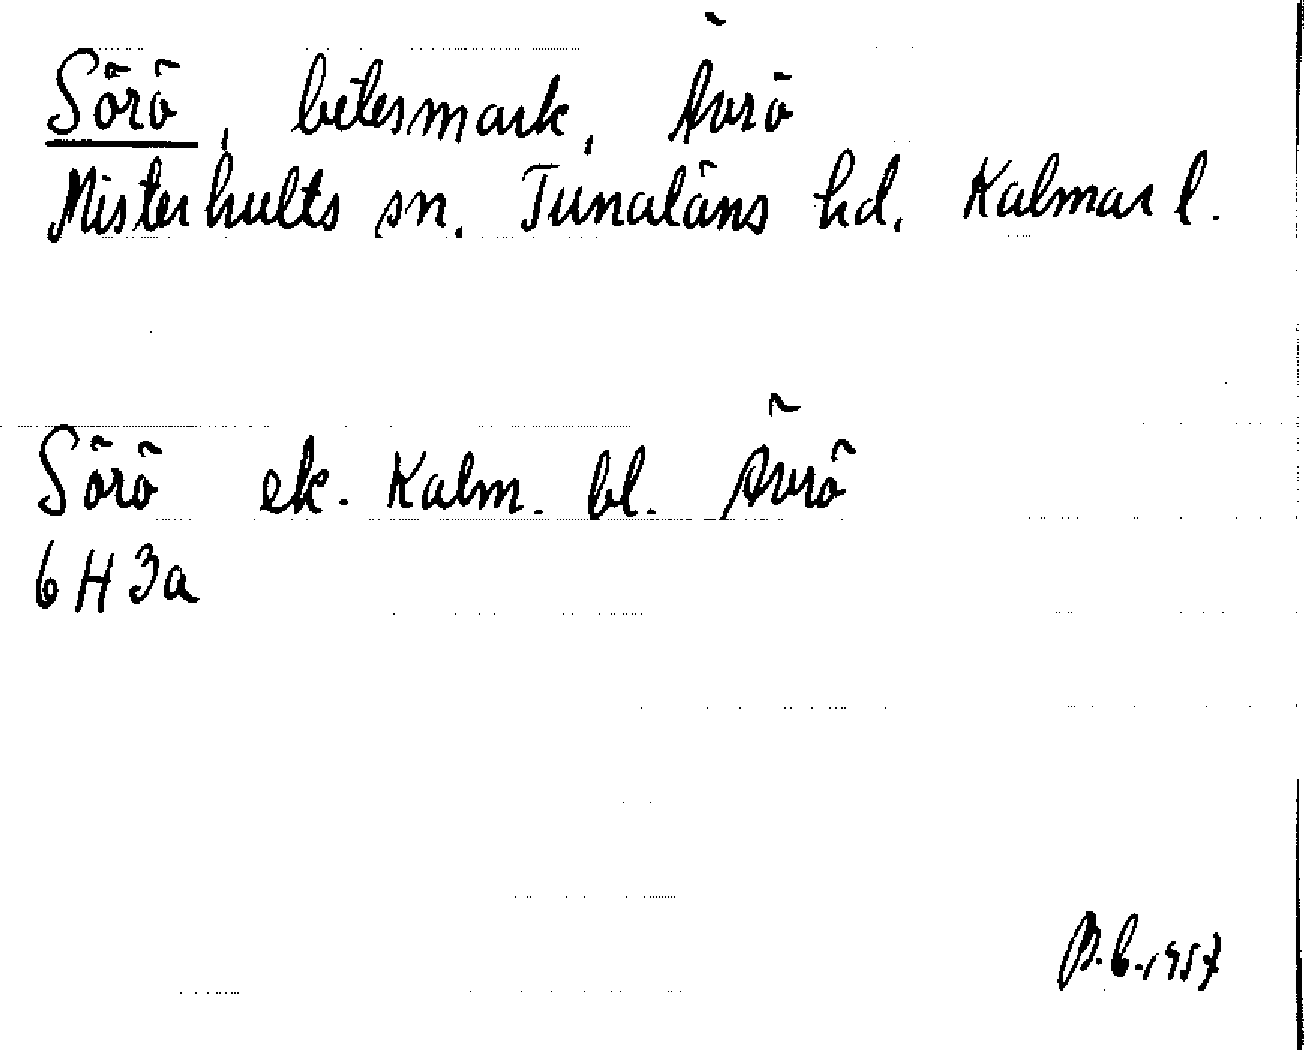 Sörö, betesmark, Ävrö
Misterhults sn. Tunaläns hd. Kalmar l.
Sörö ek. Kalm. bl. Ävrö
6H3a
B.E. 1957